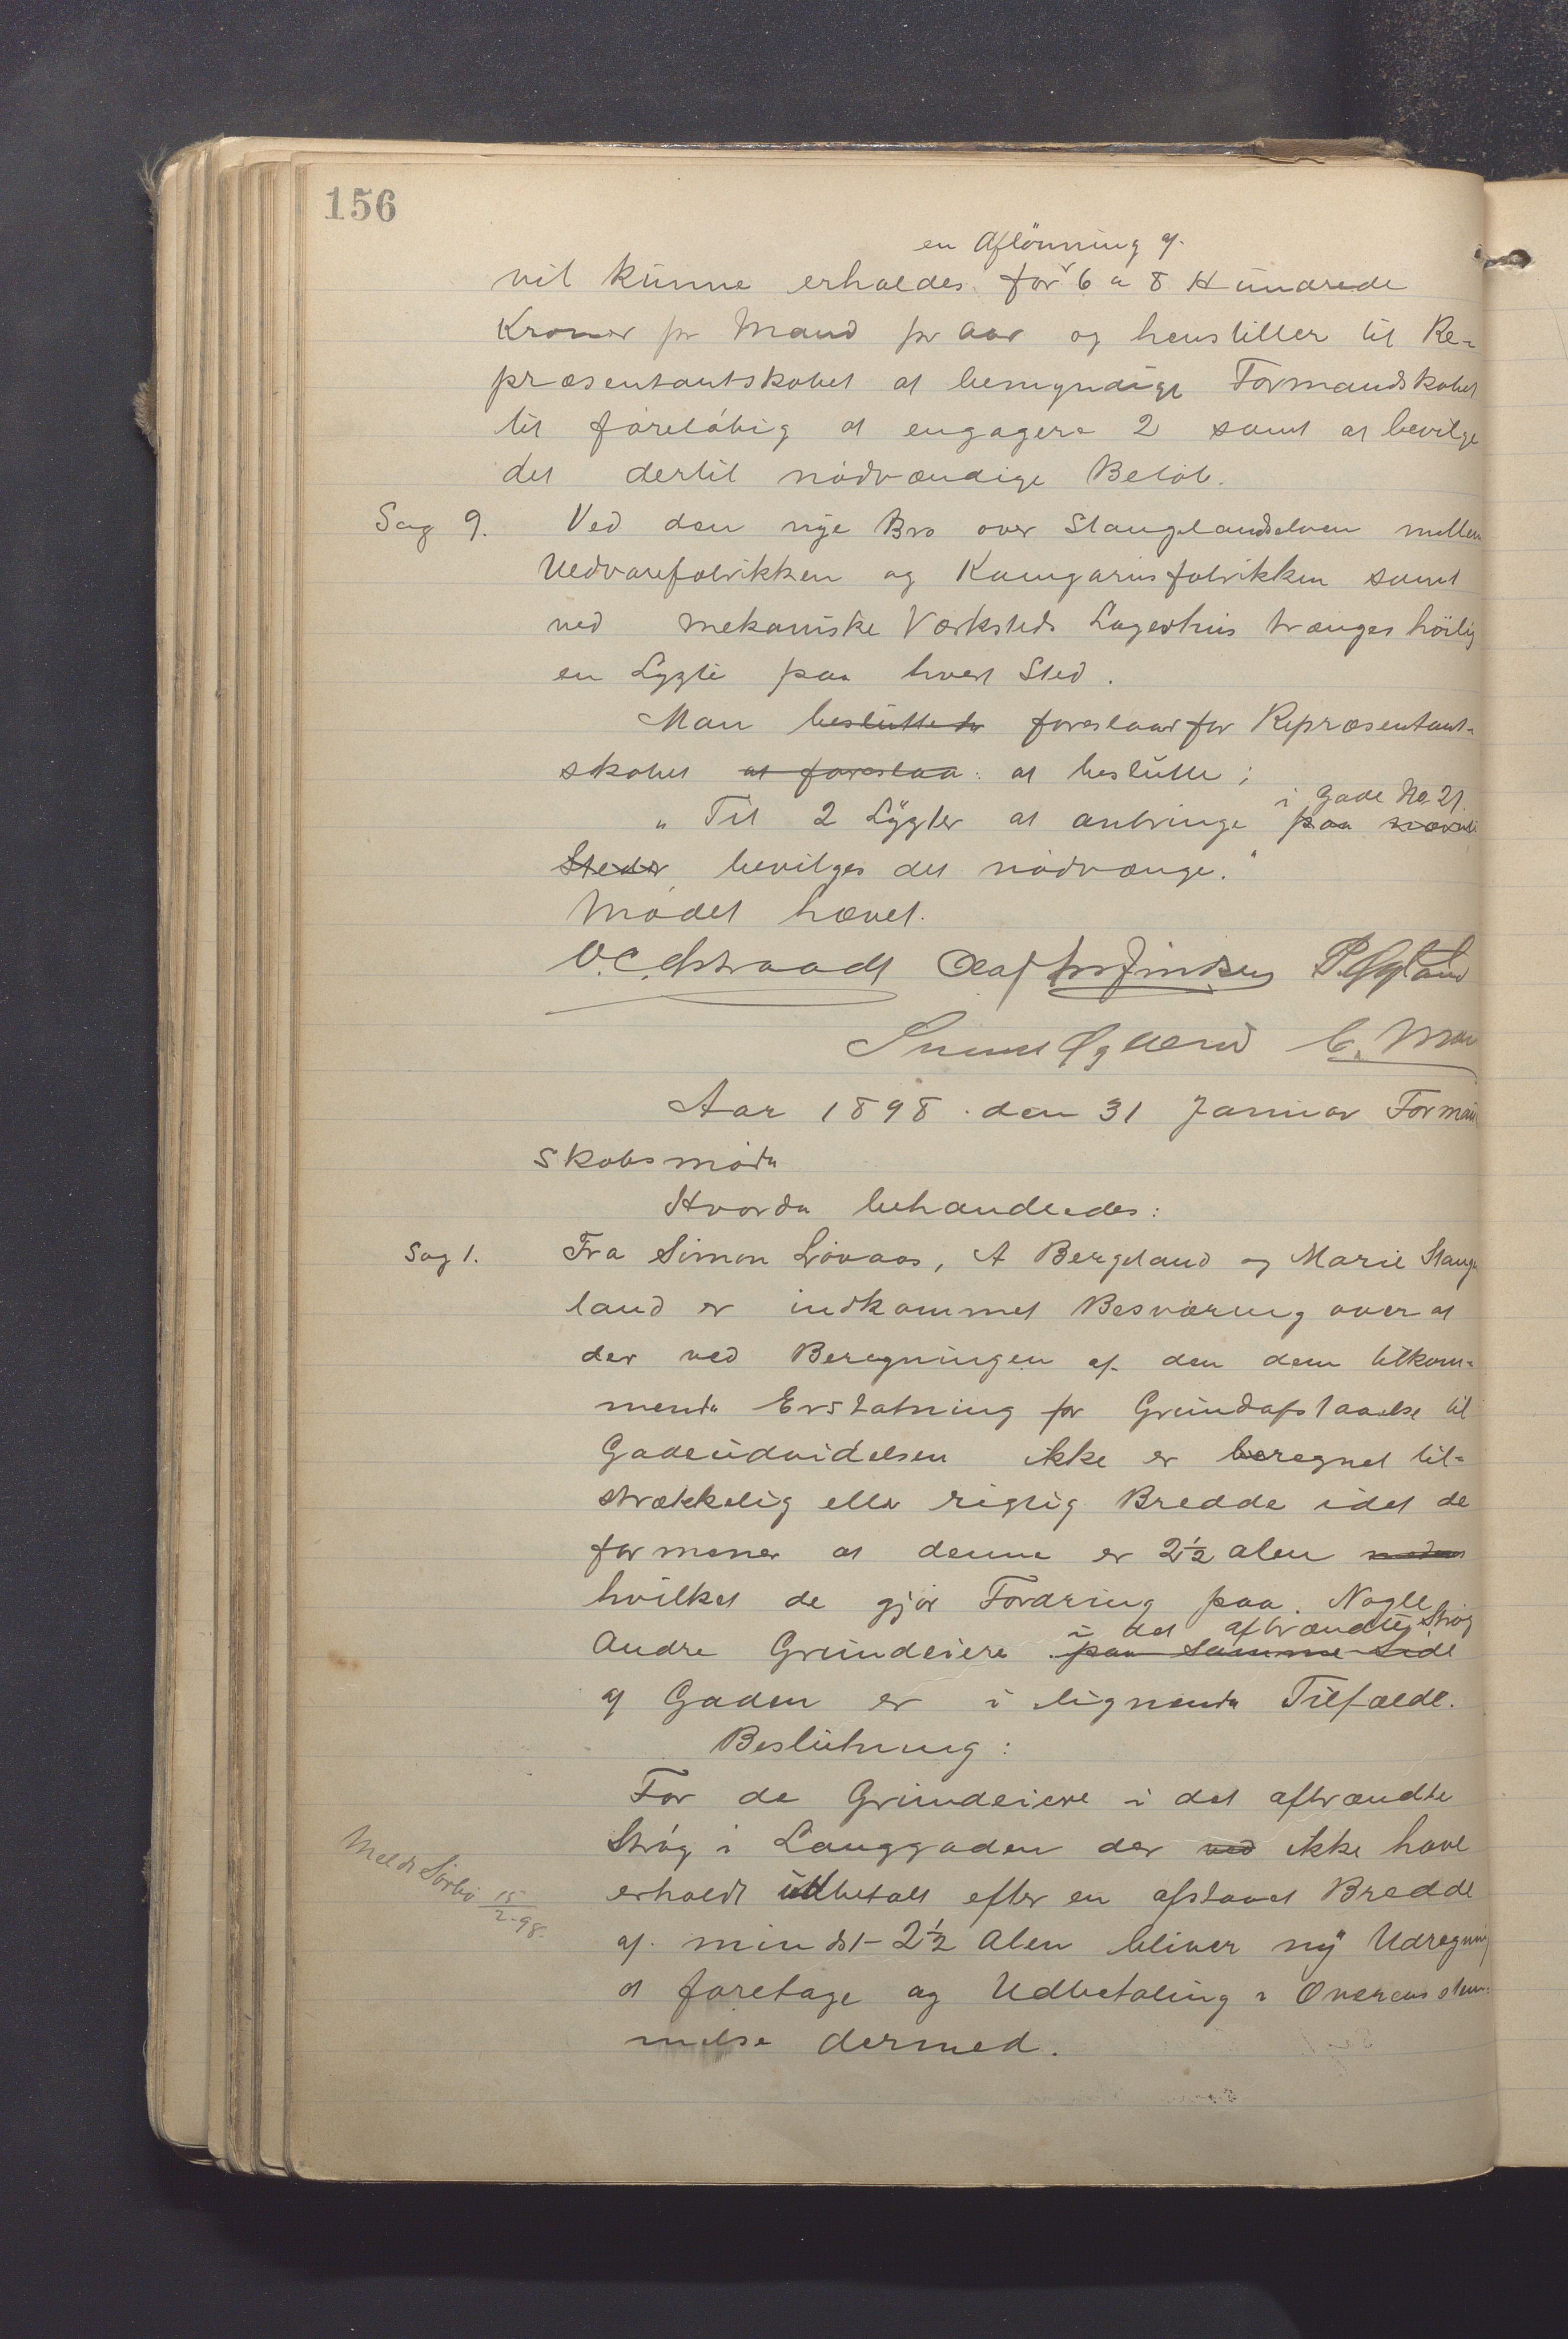 156
en Aflönning af
vil kunne erholdes for 6 a 8 Hundrede
Kroner pr Mand pr Aar og henstiller til Re-
præsentantskabet at bemyndige Formandskabet
til foreløbig at engagere 2 samt at bevilge
det dertil nødvændige Beløb.
Sag 9. Ved den nye Bro over Stanglandselven mellem
Uldvarefabrikken og Kamgarnsfabrikken samt
ved mekaniske Værksteds Lagerhus trænges høilig
en Lygte paa hvert Sted.
Man besluttede foreslaar for Repræsentant-
skabet at foreslaa: at beslutte:
i Gade No 21.
"Til 2 Lygter at anbringe paa nævnte
Steder bevilges det nødvænge."
Mødet hævet.
O.C. Astraadt Olaf P. Øgland
Øglænd C.
Aar 1898 den 31 Januar Forman
skabsmøde
Hvorda behandledes:
Sag 1. Fra Simon Lövaas, A Bergeland og Marie Stang
land er indkommet Besværing over at
der ved Beregningen af den dem tilkom-
mende Erstatning for Grundafstaaelse til
Gadeudvidelsen ikke er beregnet til-
strækkelig eller rigtig Bredde idet de
formener at denne er 2½ Alen
hvilket de gjør Fordring paa. Nogle
i det afbrændte Strøg
Andre Grundeiere paa samme Side
af Gaden er i lignende Tilfælde.
Beslutning:
For de Grundeiere i det afbrændte
Strøg i Langgaden der ved ikke have
erholdt udbetalt efter en afstaaet Bredde
Meldt Sörbö 15/2-98.
af mindst 2½ Alen bliver ny Udregning
at foretage og Udbetaling i Overensstem-
melse dermed.